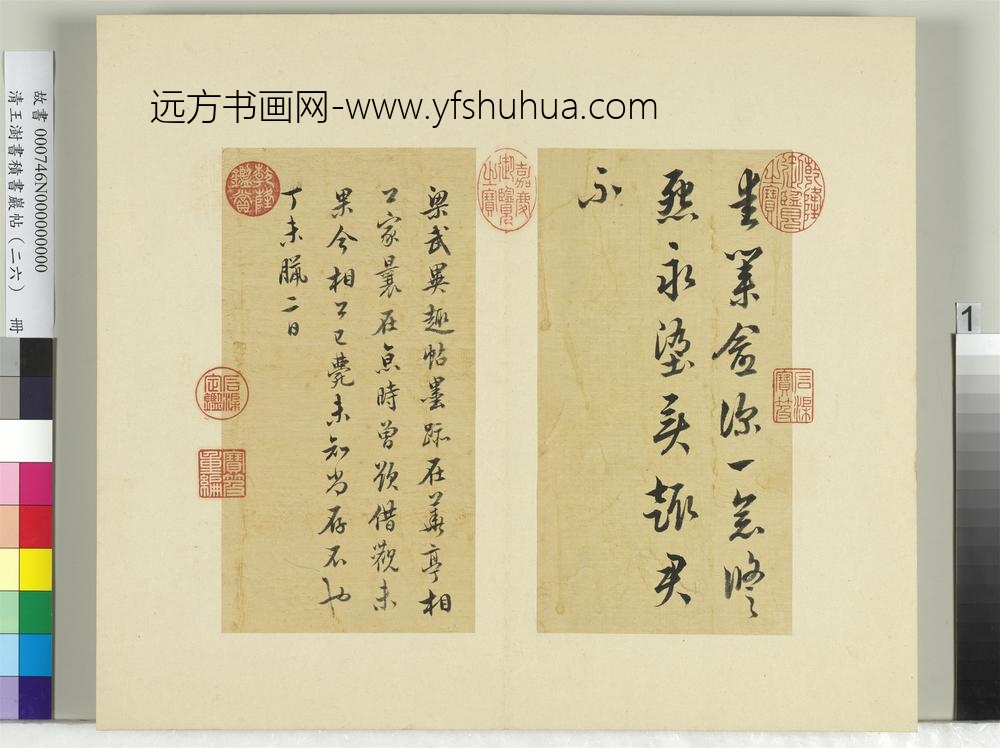 远方书画网-www.yfshuhua.com
故書 000746N000000000
清王澍書積書巖帖(二六) 冊
1
愛業愈深一念修
怨永墮異趣君
不
乾隆御覽之寶
石渠寶笈
嘉慶御覽之寶
梁武異趣帖墨跡在華亭相
公家曩在京時曾欲借觀未
果今相公已薨未知尚存不也
丁未臘二日
乾隆鑑賞
石渠定鑑
寶笈重編